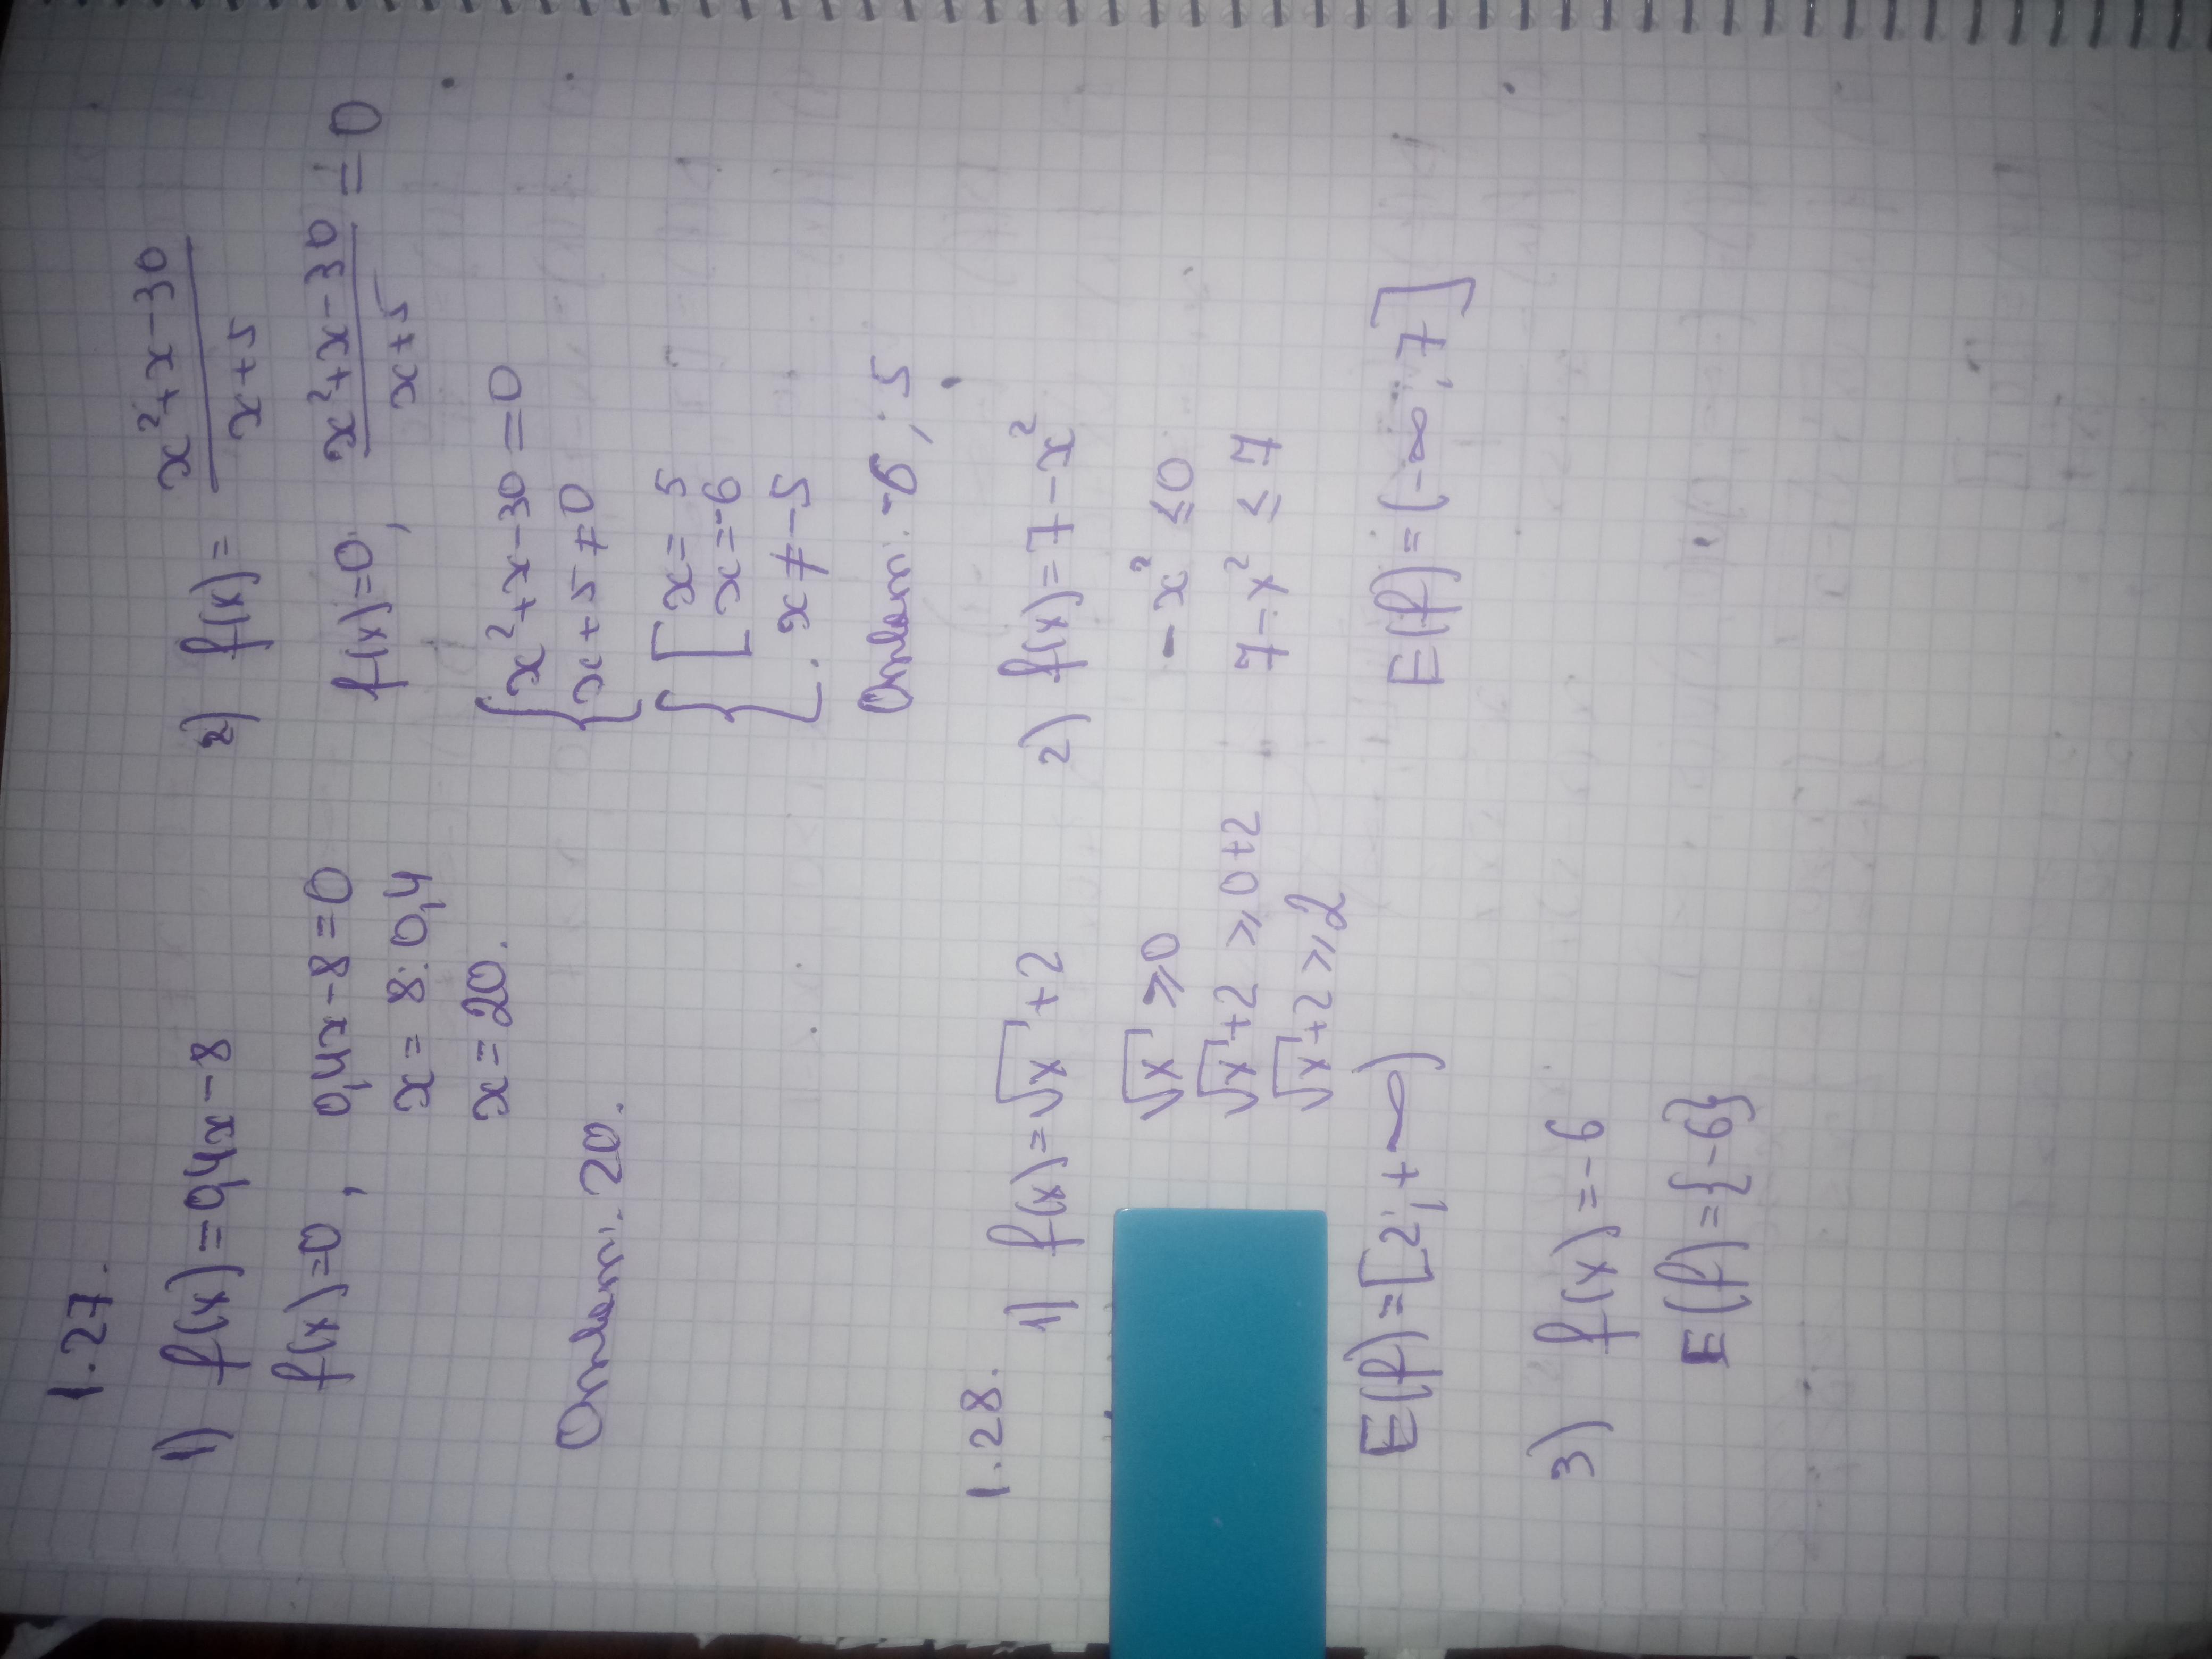 1.27.
1) f(x)=0,4x-8
f(x)=0, 0,4x-8=0
x= 8:0,4
x=20.
Ответ: 20.
2) f(x)= (x²+x-30)/(x+5)
f(x)=0, (x²+x-30)/(x+5) =0
{ x²+x-30=0
x+5≠0
{ [ x=5
x=-6
x≠-5
Ответ: -6; 5
1.28. 1) f(x)=√x+2
√x ⩾0
√x+2⩾0+2
√x+2⩾2
E(f)=[2;+∞)
2) f(x)=7-x²
-x²≤0
7-x²≤7
E(f)=(-∞;7]
3) f(x)=-6
E(f)={-6}